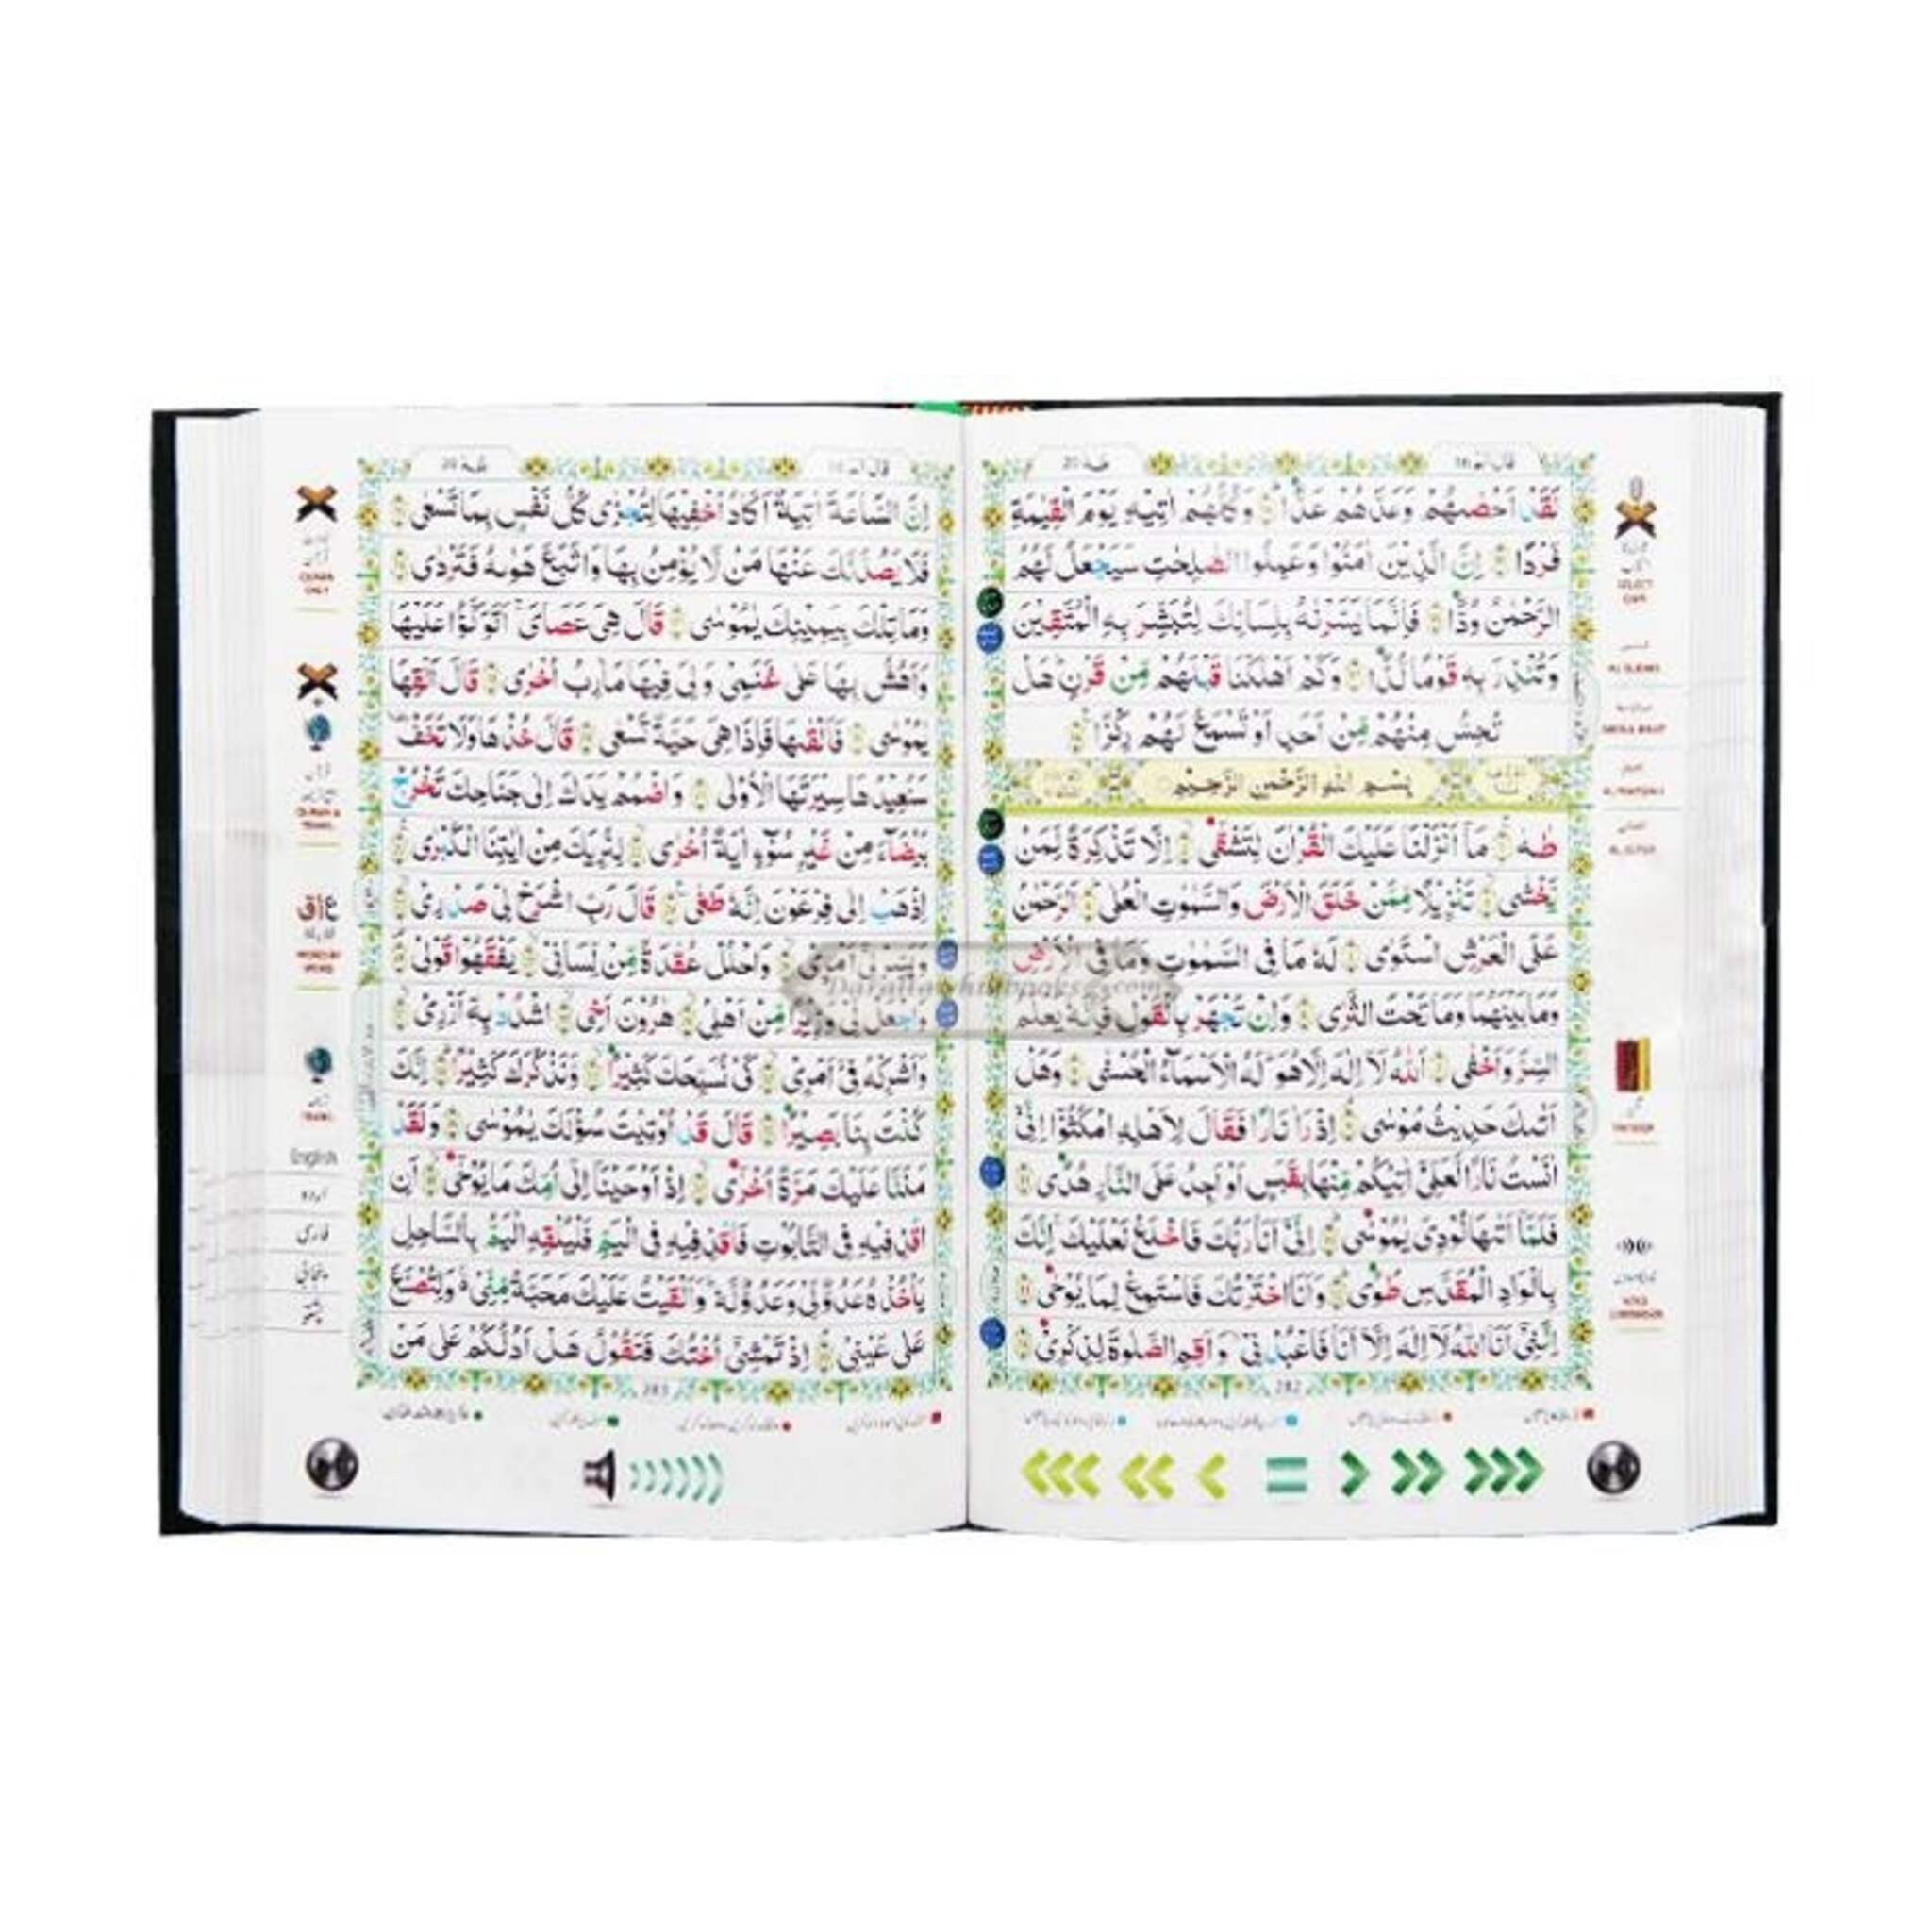 طٰهٰ 20
قال الم 16
لَقَدْ اَحْصٰىهُمْ وَعَدَّهُمْ عَدًّا وَكُلُّهُمْ اٰتِيْهِ يَوْمَ الْقِيٰمَةِ
فَرْدًا اِنَّ الَّذِيْنَ اٰمَنُوْا وَعَمِلُوا الصّٰلِحٰتِ سَيَجْعَلُ لَهُمُ
الرَّحْمٰنُ وُدًّا فَاِنَّمَا يَسَّرْنٰهُ بِلِسَانِكَ لِتُبَشِّرَ بِهِ الْمُتَّقِيْنَ
وَتُنْذِرَ بِهٖ قَوْمًا لُّدًّا وَكَمْ اَهْلَكْنَا قَبْلَهُمْ مِّنْ قَرْنٍ هَلْ
تُحِسُّ مِنْهُمْ مِّنْ اَحَدٍ اَوْ تَسْمَعُ لَهُمْ رِكْزًا
بِسْمِ اللّٰهِ الرَّحْمٰنِ الرَّحِيْمِ
طٰهٰ مَاۤ اَنْزَلْنَا عَلَيْكَ الْقُرْاٰنَ لِتَشْقٰۤى اِلَّا تَذْكِرَةً لِّمَنْ
يَّخْشٰى تَنْزِيْلًا مِّمَّنْ خَلَقَ الْاَرْضَ وَالسَّمٰوٰتِ الْعُلٰى اَلرَّحْمٰنُ
عَلَى الْعَرْشِ اسْتَوٰى لَهٗ مَا فِى السَّمٰوٰتِ وَمَا فِى الْاَرْضِ
وَمَا بَيْنَهُمَا وَمَا تَحْتَ الثَّرٰى وَاِنْ تَجْهَرْ بِالْقَوْلِ فَاِنَّهٗ يَعْلَمُ
السِّرَّ وَاَخْفٰى اَللّٰهُ لَاۤ اِلٰهَ اِلَّا هُوَ لَهُ الْاَسْمَآءُ الْحُسْنٰى وَهَلْ
اَتٰىكَ حَدِيْثُ مُوْسٰى اِذْ رَاٰ نَارًا فَقَالَ لِاَهْلِهِ امْكُثُوْۤا اِنِّىْۤ
اٰنَسْتُ نَارًا لَّعَلِّىْۤ اٰتِيْكُمْ مِّنْهَا بِقَبَسٍ اَوْ اَجِدُ عَلَى النَّارِ هُدًى
فَلَمَّاۤ اَتٰىهَا نُوْدِىَ يٰمُوْسٰى اِنِّىْۤ اَنَا رَبُّكَ فَاخْلَعْ نَعْلَيْكَ اِنَّكَ
بِالْوَادِ الْمُقَدَّسِ طُوًى وَاَنَا اخْتَرْتُكَ فَاسْتَمِعْ لِمَا يُوْحٰى
اِنَّنِىْۤ اَنَا اللّٰهُ لَاۤ اِلٰهَ اِلَّاۤ اَنَا فَاعْبُدْنِىْ وَاَقِمِ الصَّلٰوةَ لِذِكْرِىْ
282
طٰهٰ 20
قال الم 16
اِنَّ السَّاعَةَ اٰتِيَةٌ اَكَادُ اُخْفِيْهَا لِتُجْزٰى كُلُّ نَفْسٍۭ بِمَا تَسْعٰى
فَلَا يَصُدَّنَّكَ عَنْهَا مَنْ لَّا يُؤْمِنُ بِهَا وَاتَّبَعَ هَوٰىهُ فَتَرْدٰى
وَمَا تِلْكَ بِيَمِيْنِكَ يٰمُوْسٰى قَالَ هِىَ عَصَاىَ اَتَوَكَّؤُا عَلَيْهَا
وَاَهُشُّ بِهَا عَلٰى غَنَمِىْ وَلِىَ فِيْهَا مَاٰرِبُ اُخْرٰى قَالَ اَلْقِهَا
يٰمُوْسٰى فَاَلْقٰىهَا فَاِذَا هِىَ حَيَّةٌ تَسْعٰى قَالَ خُذْهَا وَلَا تَخَفْ
سَنُعِيْدُهَا سِيْرَتَهَا الْاُوْلٰى وَاضْمُمْ يَدَكَ اِلٰى جَنَاحِكَ تَخْرُجْ
بَيْضَآءَ مِنْ غَيْرِ سُوْٓءٍ اٰيَةً اُخْرٰى لِنُرِيَكَ مِنْ اٰيٰتِنَا الْكُبْرٰى
اِذْهَبْ اِلٰى فِرْعَوْنَ اِنَّهٗ طَغٰى قَالَ رَبِّ اشْرَحْ لِىْ صَدْرِىْ
وَيَسِّرْ لِىْۤ اَمْرِىْ وَاحْلُلْ عُقْدَةً مِّنْ لِّسَانِىْ يَفْقَهُوْا قَوْلِىْ
وَاجْعَلْ لِّىْ وَزِيْرًا مِّنْ اَهْلِىْ هٰرُوْنَ اَخِى اشْدُدْ بِهٖۤ اَزْرِىْ
وَاَشْرِكْهُ فِىْۤ اَمْرِىْ كَىْ نُسَبِّحَكَ كَثِيْرًا وَّنَذْكُرَكَ كَثِيْرًا اِنَّكَ
كُنْتَ بِنَا بَصِيْرًا قَالَ قَدْ اُوْتِيْتَ سُؤْلَكَ يٰمُوْسٰى وَلَقَدْ
مَنَنَّا عَلَيْكَ مَرَّةً اُخْرٰۤى اِذْ اَوْحَيْنَاۤ اِلٰۤى اُمِّكَ مَا يُوْحٰۤى اَنِ
اقْذِفِيْهِ فِى التَّابُوْتِ فَاقْذِفِيْهِ فِى الْيَمِّ فَلْيُلْقِهِ الْيَمُّ بِالسَّاحِلِ
يَاْخُذْهُ عَدُوٌّ لِّىْ وَعَدُوٌّ لَّهٗ وَاَلْقَيْتُ عَلَيْكَ مَحَبَّةً مِّنِّىْ وَلِتُصْنَعَ
عَلٰى عَيْنِىْ اِذْ تَمْشِىْۤ اُخْتُكَ فَتَقُوْلُ هَلْ اَدُلُّكُمْ عَلٰى مَنْ
283
English
اردو
فارسی
پنجابی
پشتو